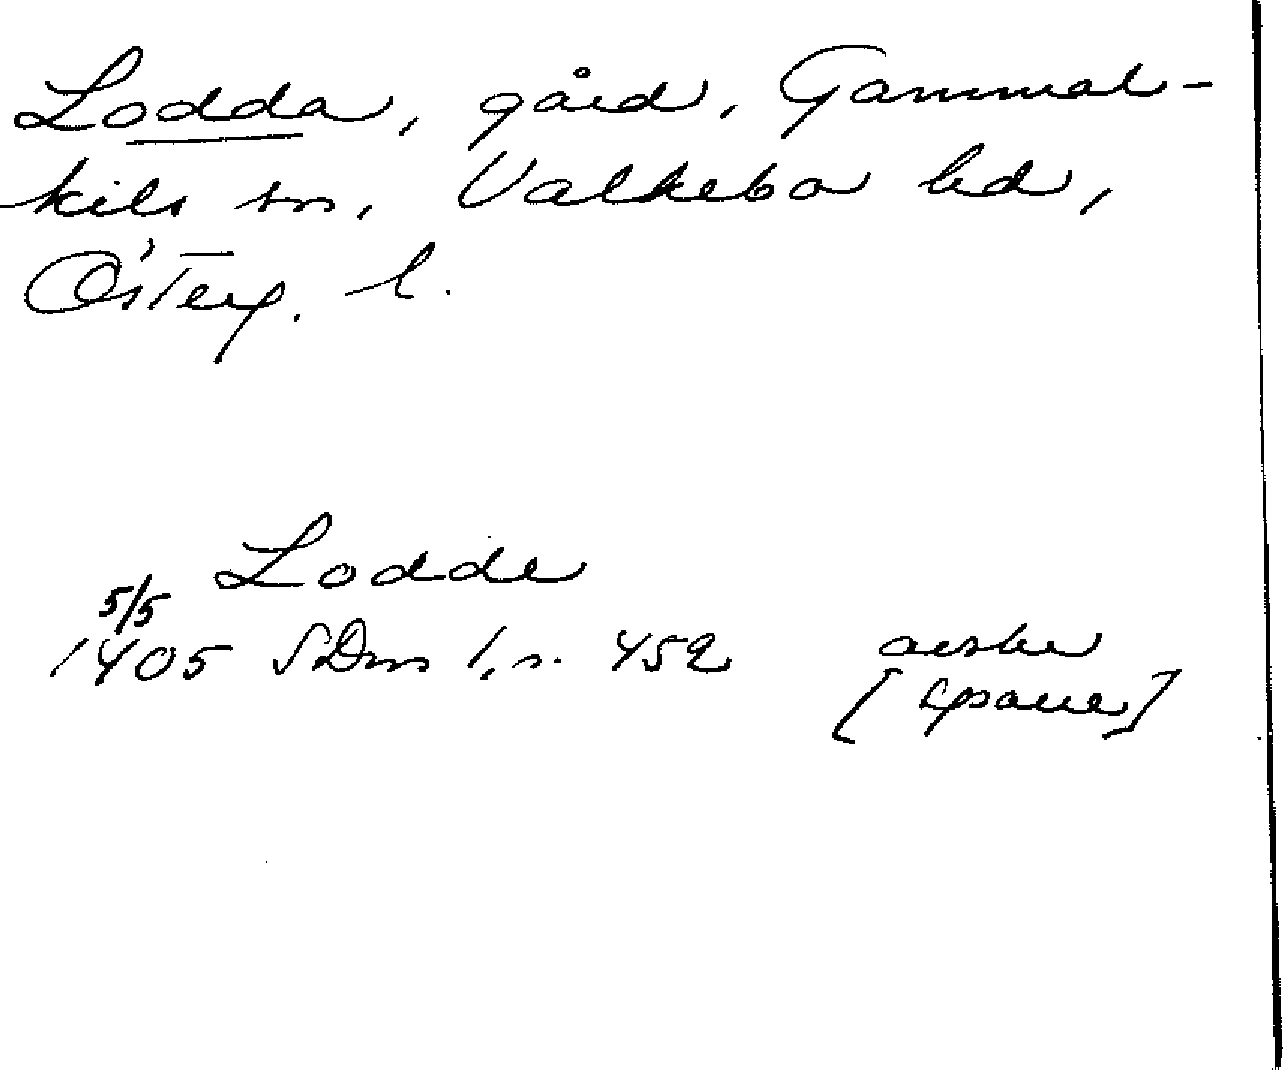 Lodda, gård, Gammal-
kils sn, Valkebo hd,
Österg. l.
Lodde
5/5
1405 SDns 1, s. 452 avskr
[Spaue]